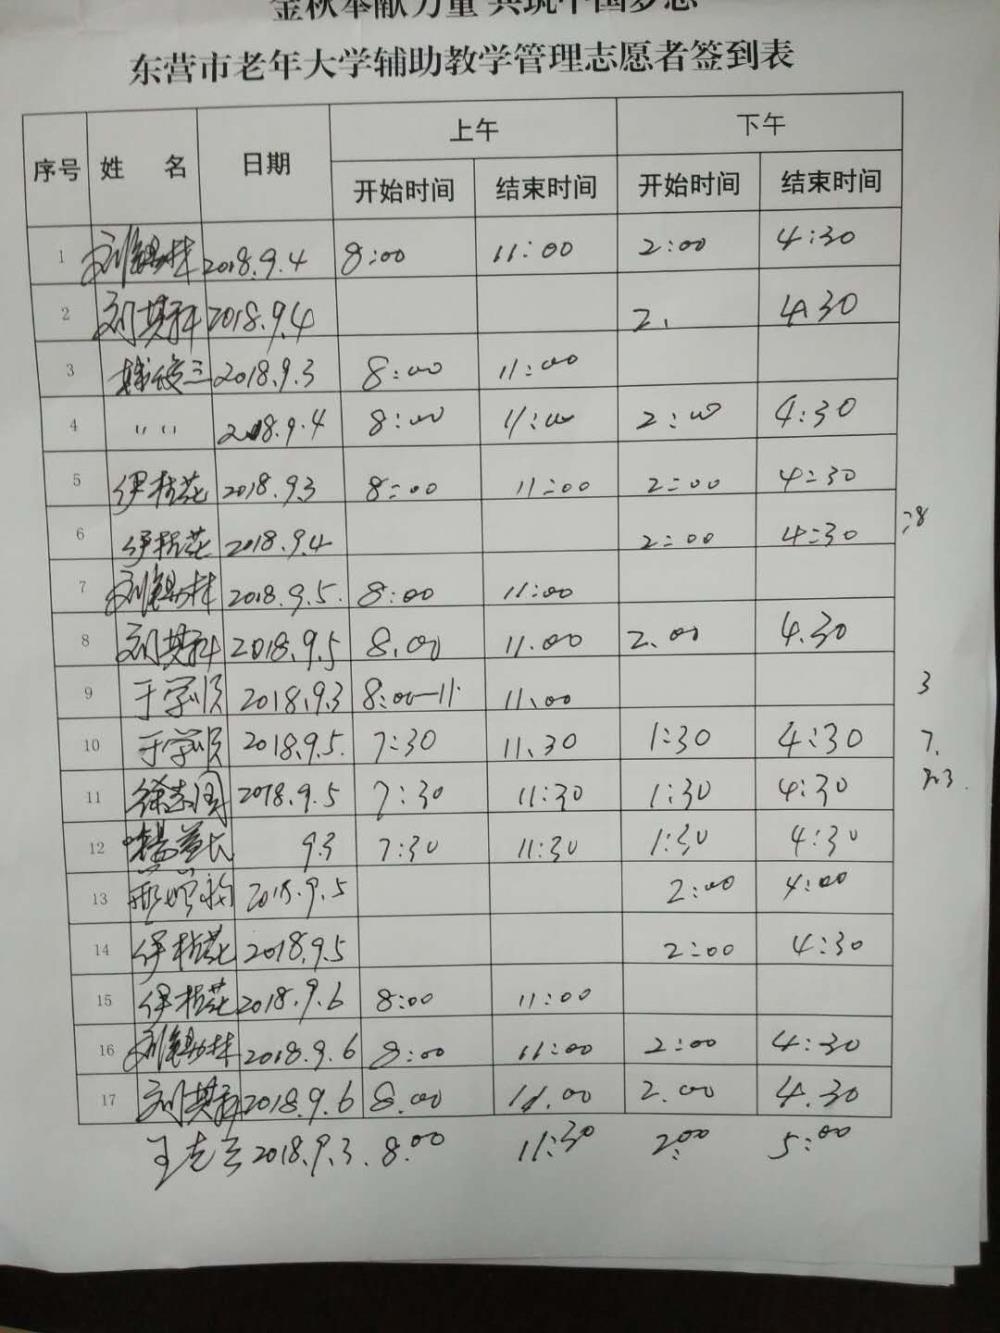 金秋奉献力量 共筑中国梦想
东营市老年大学辅助教学管理志愿者签到表
序号 姓 名 日期 上午 下午
开始时间 结束时间 开始时间 结束时间
1 刘锡林 2018.9.4 8:00 11:00 2:00 4:30
2 刘其科 2018.9.4 2. 4.30
3 2018.9.3 8:00 11:00
4 〃 〃 2018.9.4 8:00 11:00 2:00 4:30
5 伊桂花 2018.9.3 8:00 11:00 2:00 4:30
6 伊桂花 2018.9.4 2:00 4:30
7 刘锡林 2018.9.5. 8:00 11:00
8 刘其科 2018.9.5 8.00 11.00 2.00 4.30
9 于学顺 2018.9.3 8:00-11. 11.00
10 于学顺 2018.9.5. 7:30 11.30 1:30 4:30
11 徐志国 2018.9.5 7:30 11:30 1:30 4:30
12 9.3 7:30 11:30 1:30 4:30
13 2018.9.5 2:00 4:00
14 伊桂花 2018.9.5 2:00 4:30
15 伊桂花 2018.9.6 8:00 11:00
16 刘锡林 2018.9.6 8:00 11:00 2:00 4:30
17 刘其科 2018.9.6 8.00 11.00 2.00 4.30
2018.9.3. 8:00 11:30 2:00 5:00
3
7.